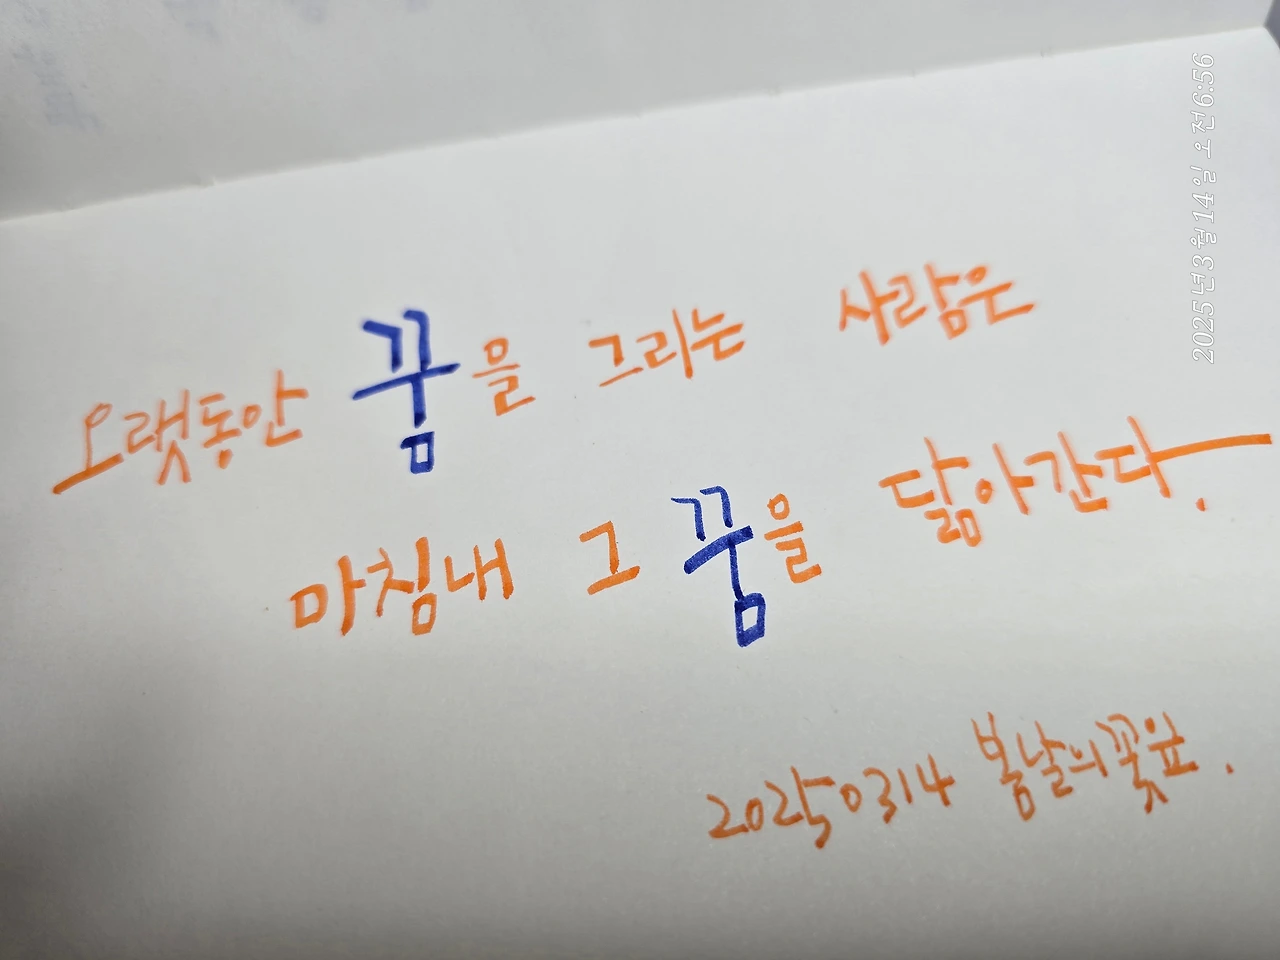 오랫동안 꿈을 그리는 사람은
마침내 그 꿈을 닮아간다.
20250314 봄날의꽃잎.
2025년 3월 14일 오전 6:56